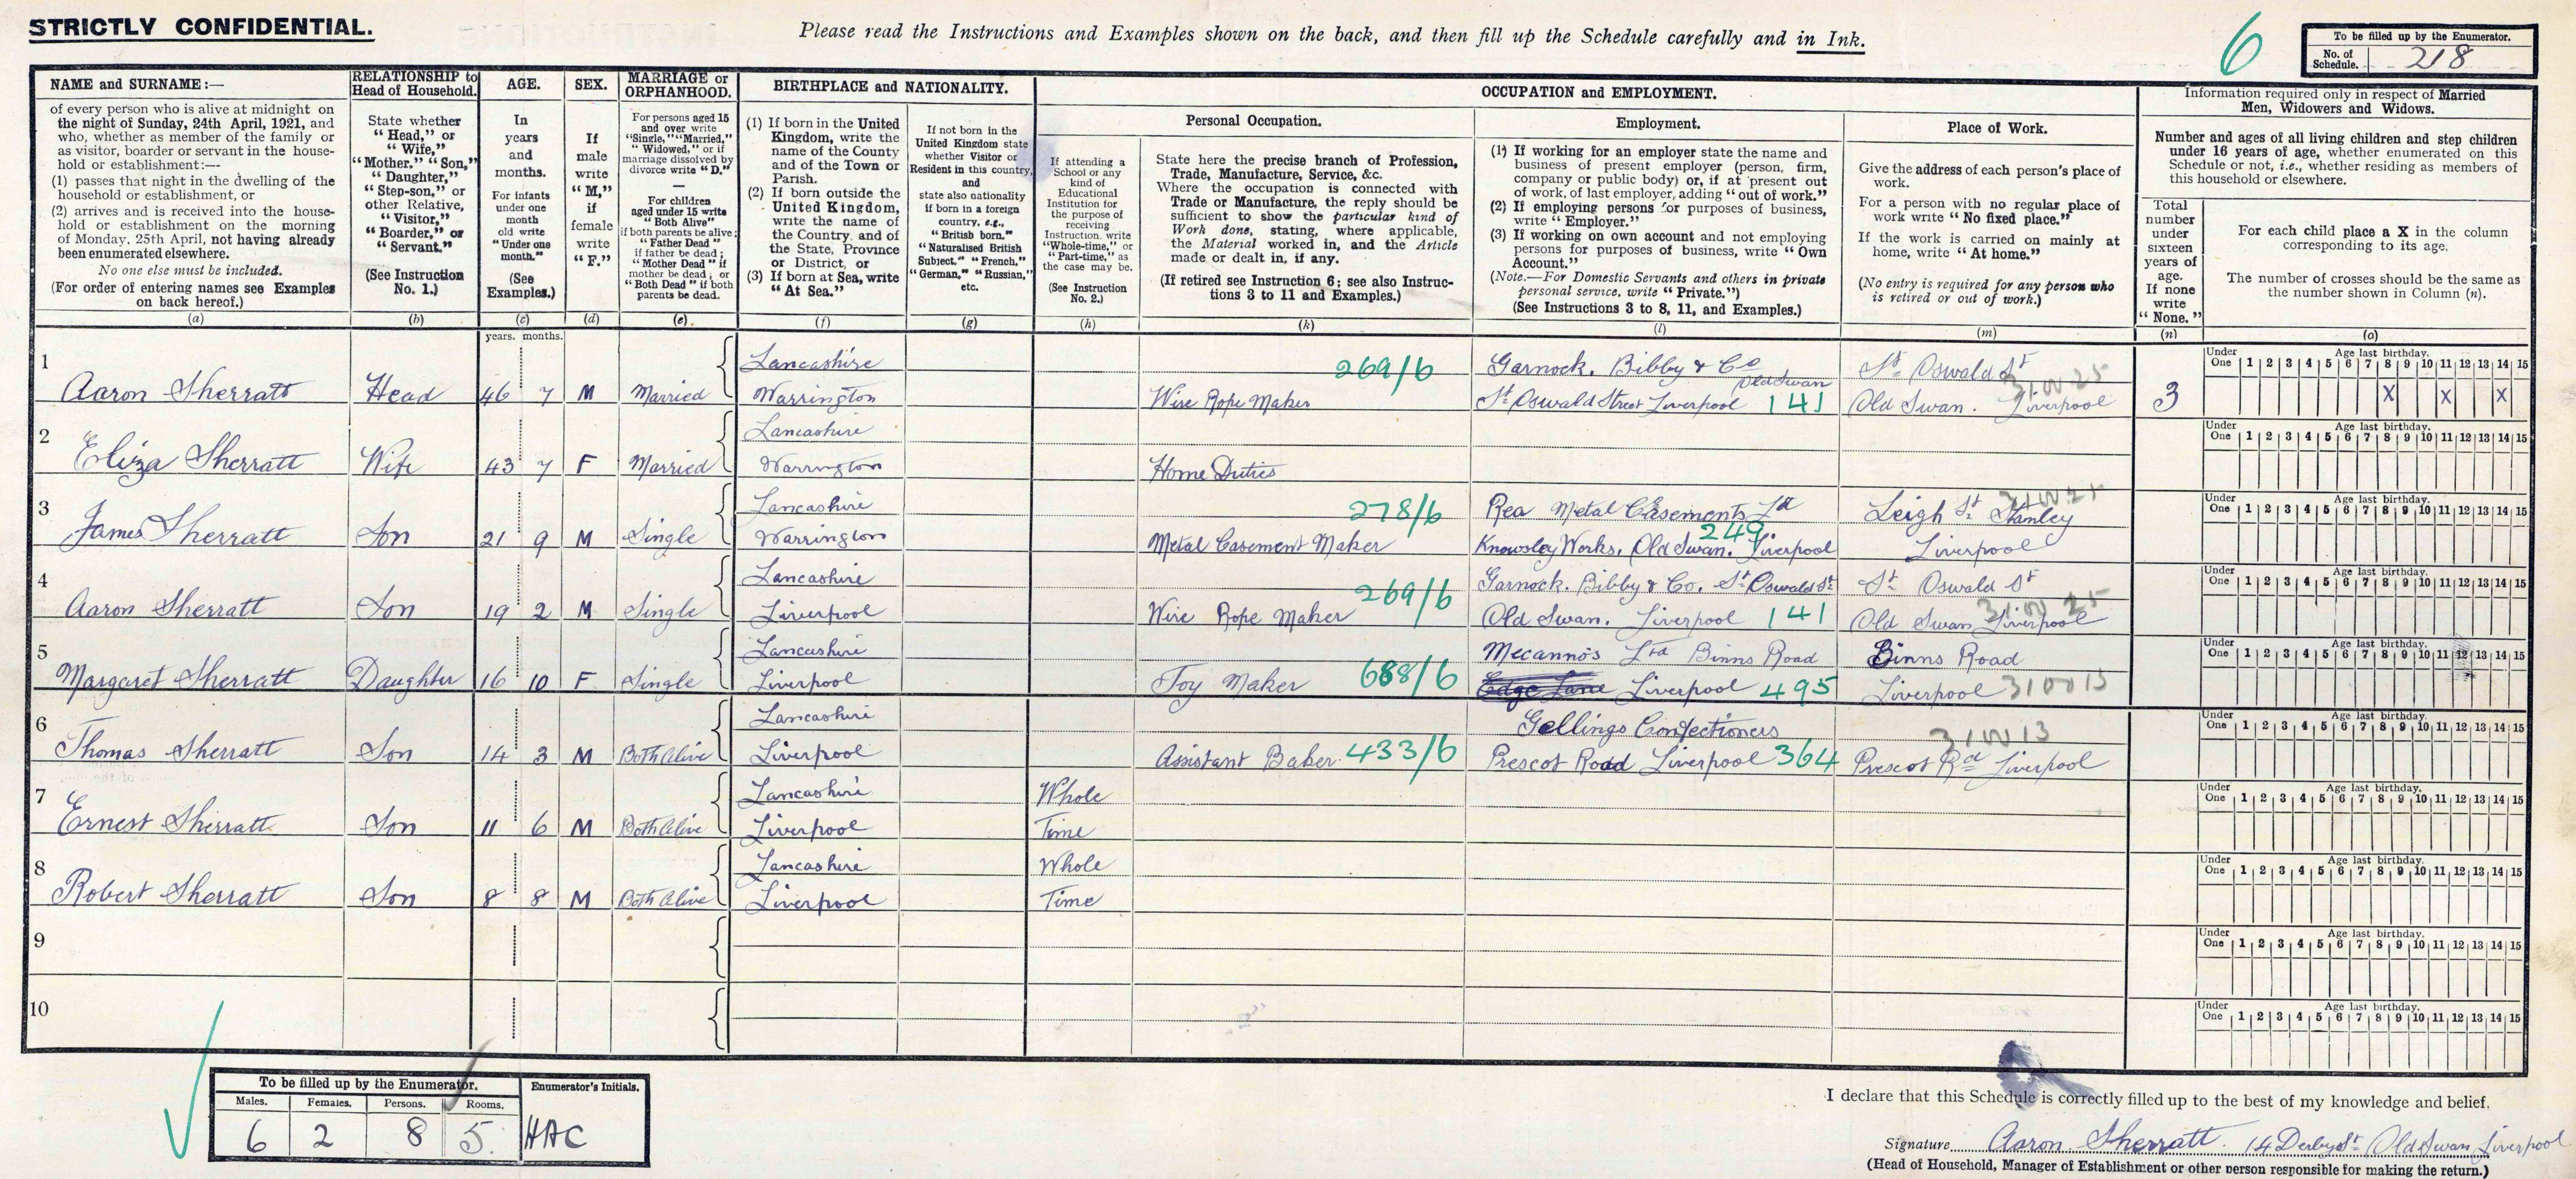 STRICTLY CONFIDENTIAL.
Please read the Instructions and Examples shown on the back, and then fill up the Schedule carefully and in Ink.
6
To be filled up by the Enumerator.
No. of Schedule. 218
NAME and SURNAME:—
of every person who is alive at midnight on
the night of Sunday, 24th April, 1921, and
who, whether as member of the family or
as visitor, boarder or servant in the house-
hold or establishment:—
(1) passes that night in the dwelling of the
household or establishment, or
(2) arrives and is received into the house-
hold or establishment on the morning
of Monday, 25th April, not having already
been enumerated elsewhere.
No one else must be included.
(For order of entering names see Examples
on back hereof.)
(a)
RELATIONSHIP to
Head of Household.
State whether
"Head," or
"Wife,"
"Mother," "Son,"
"Daughter,"
"Step-son," or
other Relative,
"Visitor,"
"Boarder," or
"Servant."
(See Instruction
No. 1.)
(b)
AGE.
In
years
and
months.
For infants
under one
month
old write
"Under one
month."
(See
Examples.)
(c)
years. months.
SEX.
If
male
write
"M,"
if
female
write
"F."
(d)
MARRIAGE or
ORPHANHOOD.
For persons aged 15
and over write
"Single," "Married,"
"Widowed," or if
marriage dissolved by
divorce write "D."
—
For children
aged under 15 write
"Both Alive"
if both parents be alive;
"Father Dead"
if father be dead;
"Mother Dead" if
mother be dead; or
"Both Dead" if both
parents be dead.
(e)
BIRTHPLACE and NATIONALITY.
(1) If born in the United
Kingdom, write the
name of the County
and of the Town or
Parish.
(2) If born outside the
United Kingdom,
write the name of
the Country, and of
the State, Province
or District, or
(3) If born at Sea, write
"At Sea."
(f)
If not born in the
United Kingdom state
whether Visitor or
Resident in this country,
and
state also nationality
if born in a foreign
country, e.g.,
"British born,"
"Naturalised British
Subject," "French,"
"German," "Russian,"
etc.
(g)
OCCUPATION and EMPLOYMENT.
If attending a
School or any
kind of
Educational
Institution for
the purpose of
receiving
Instruction, write
"Whole-time," or
"Part-time," as
the case may be.
(See Instruction
No. 2.)
(h)
Personal Occupation.
State here the precise branch of Profession,
Trade, Manufacture, Service, &c.
Where the occupation is connected with
Trade or Manufacture, the reply should be
sufficient to show the particular kind of
Work done, stating, where applicable,
the Material worked in, and the Article
made or dealt in, if any.
(If retired see Instruction 6; see also Instruc-
tions 3 to 11 and Examples.)
(k)
Employment.
(1) If working for an employer state the name and
business of present employer (person, firm,
company or public body) or, if at present out
of work, of last employer, adding "out of work."
(2) If employing persons for purposes of business,
write "Employer."
(3) If working on own account and not employing
persons for purposes of business, write "Own
Account."
(Note.—For Domestic Servants and others in private
personal service, write "Private.")
(See Instructions 3 to 8, 11, and Examples.)
(l)
Place of Work.
Give the address of each person's place of
work.
For a person with no regular place of
work write "No fixed place."
If the work is carried on mainly at
home, write "At home."
(No entry is required for any person who
is retired or out of work.)
(m)
Information required only in respect of Married
Men, Widowers and Widows.
Number and ages of all living children and step children
under 16 years of age, whether enumerated on this
Schedule or not, i.e., whether residing as members of
this household or elsewhere.
Total
number
under
sixteen
years of
age.
If none
write
"None."
(n)
For each child place a X in the column
corresponding to its age.
The number of crosses should be the same as
the number shown in Column (n).
(o)
Under One Age last birthday. 1 2 3 4 5 6 7 8 9 10 11 12 13 14 15
1 Lancashire 269/6 Garnock. Bibby & Co St. Oswald St
Old Swan
Aaron Sherratt Head 46 7 M Married Warrington Wire Rope Maker St Oswald Street Liverpool 141 Old Swan. Liverpool 3 X X X
Under One Age last birthday. 1 2 3 4 5 6 7 8 9 10 11 12 13 14 15
2 Lancashire
Eliza Sherratt Wife 43 7 F Married Warrington Home Duties
Under One Age last birthday. 1 2 3 4 5 6 7 8 9 10 11 12 13 14 15
3 Lancashire 278/6 Rea Metal Casements Ltd Leigh St. Stanley
James Sherratt Son 21 9 M Single Warrington Metal Casement Maker Knowsley Works, Old Swan. Liverpool 249 Liverpool
Under One Age last birthday. 1 2 3 4 5 6 7 8 9 10 11 12 13 14 15
4 Lancashire 269/6 Garnock. Bibby & Co. St Oswald St. St. Oswald St
Aaron Sherratt Son 19 2 M Single Liverpool Wire Rope Maker Old Swan. Liverpool 141 Old Swan Liverpool
Under One Age last birthday. 1 2 3 4 5 6 7 8 9 10 11 12 13 14 15
5 Lancashire Mecanno's Ltd Binns Road Binns Road
Margaret Sherratt Daughter 16 10 F Single Liverpool Toy Maker 688/6 Edge Lane Liverpool 495 Liverpool
Under One Age last birthday. 1 2 3 4 5 6 7 8 9 10 11 12 13 14 15
6 Lancashire Gellings Confectioners
Thomas Sherratt Son 14 3 M Both Alive Liverpool Assistant Baker 433/6 Prescot Road Liverpool 364 Prescot Rd Liverpool
Under One Age last birthday. 1 2 3 4 5 6 7 8 9 10 11 12 13 14 15
7 Lancashire Whole
Ernest Sherratt Son 11 6 M Both Alive Liverpool Time
Under One Age last birthday. 1 2 3 4 5 6 7 8 9 10 11 12 13 14 15
8 Lancashire Whole
Robert Sherratt Son 8 8 M Both Alive Liverpool Time
Under One Age last birthday. 1 2 3 4 5 6 7 8 9 10 11 12 13 14 15
9
Under One Age last birthday. 1 2 3 4 5 6 7 8 9 10 11 12 13 14 15
10
To be filled up by the Enumerator. Enumerator's Initials.
Males. Females. Persons. Rooms.
6 2 8 5. HAC
I declare that this Schedule is correctly filled up to the best of my knowledge and belief.
Signature Aaron Sherratt. 14 Derby St. Old Swan Liverpool
(Head of Household, Manager of Establishment or other person responsible for making the return.)